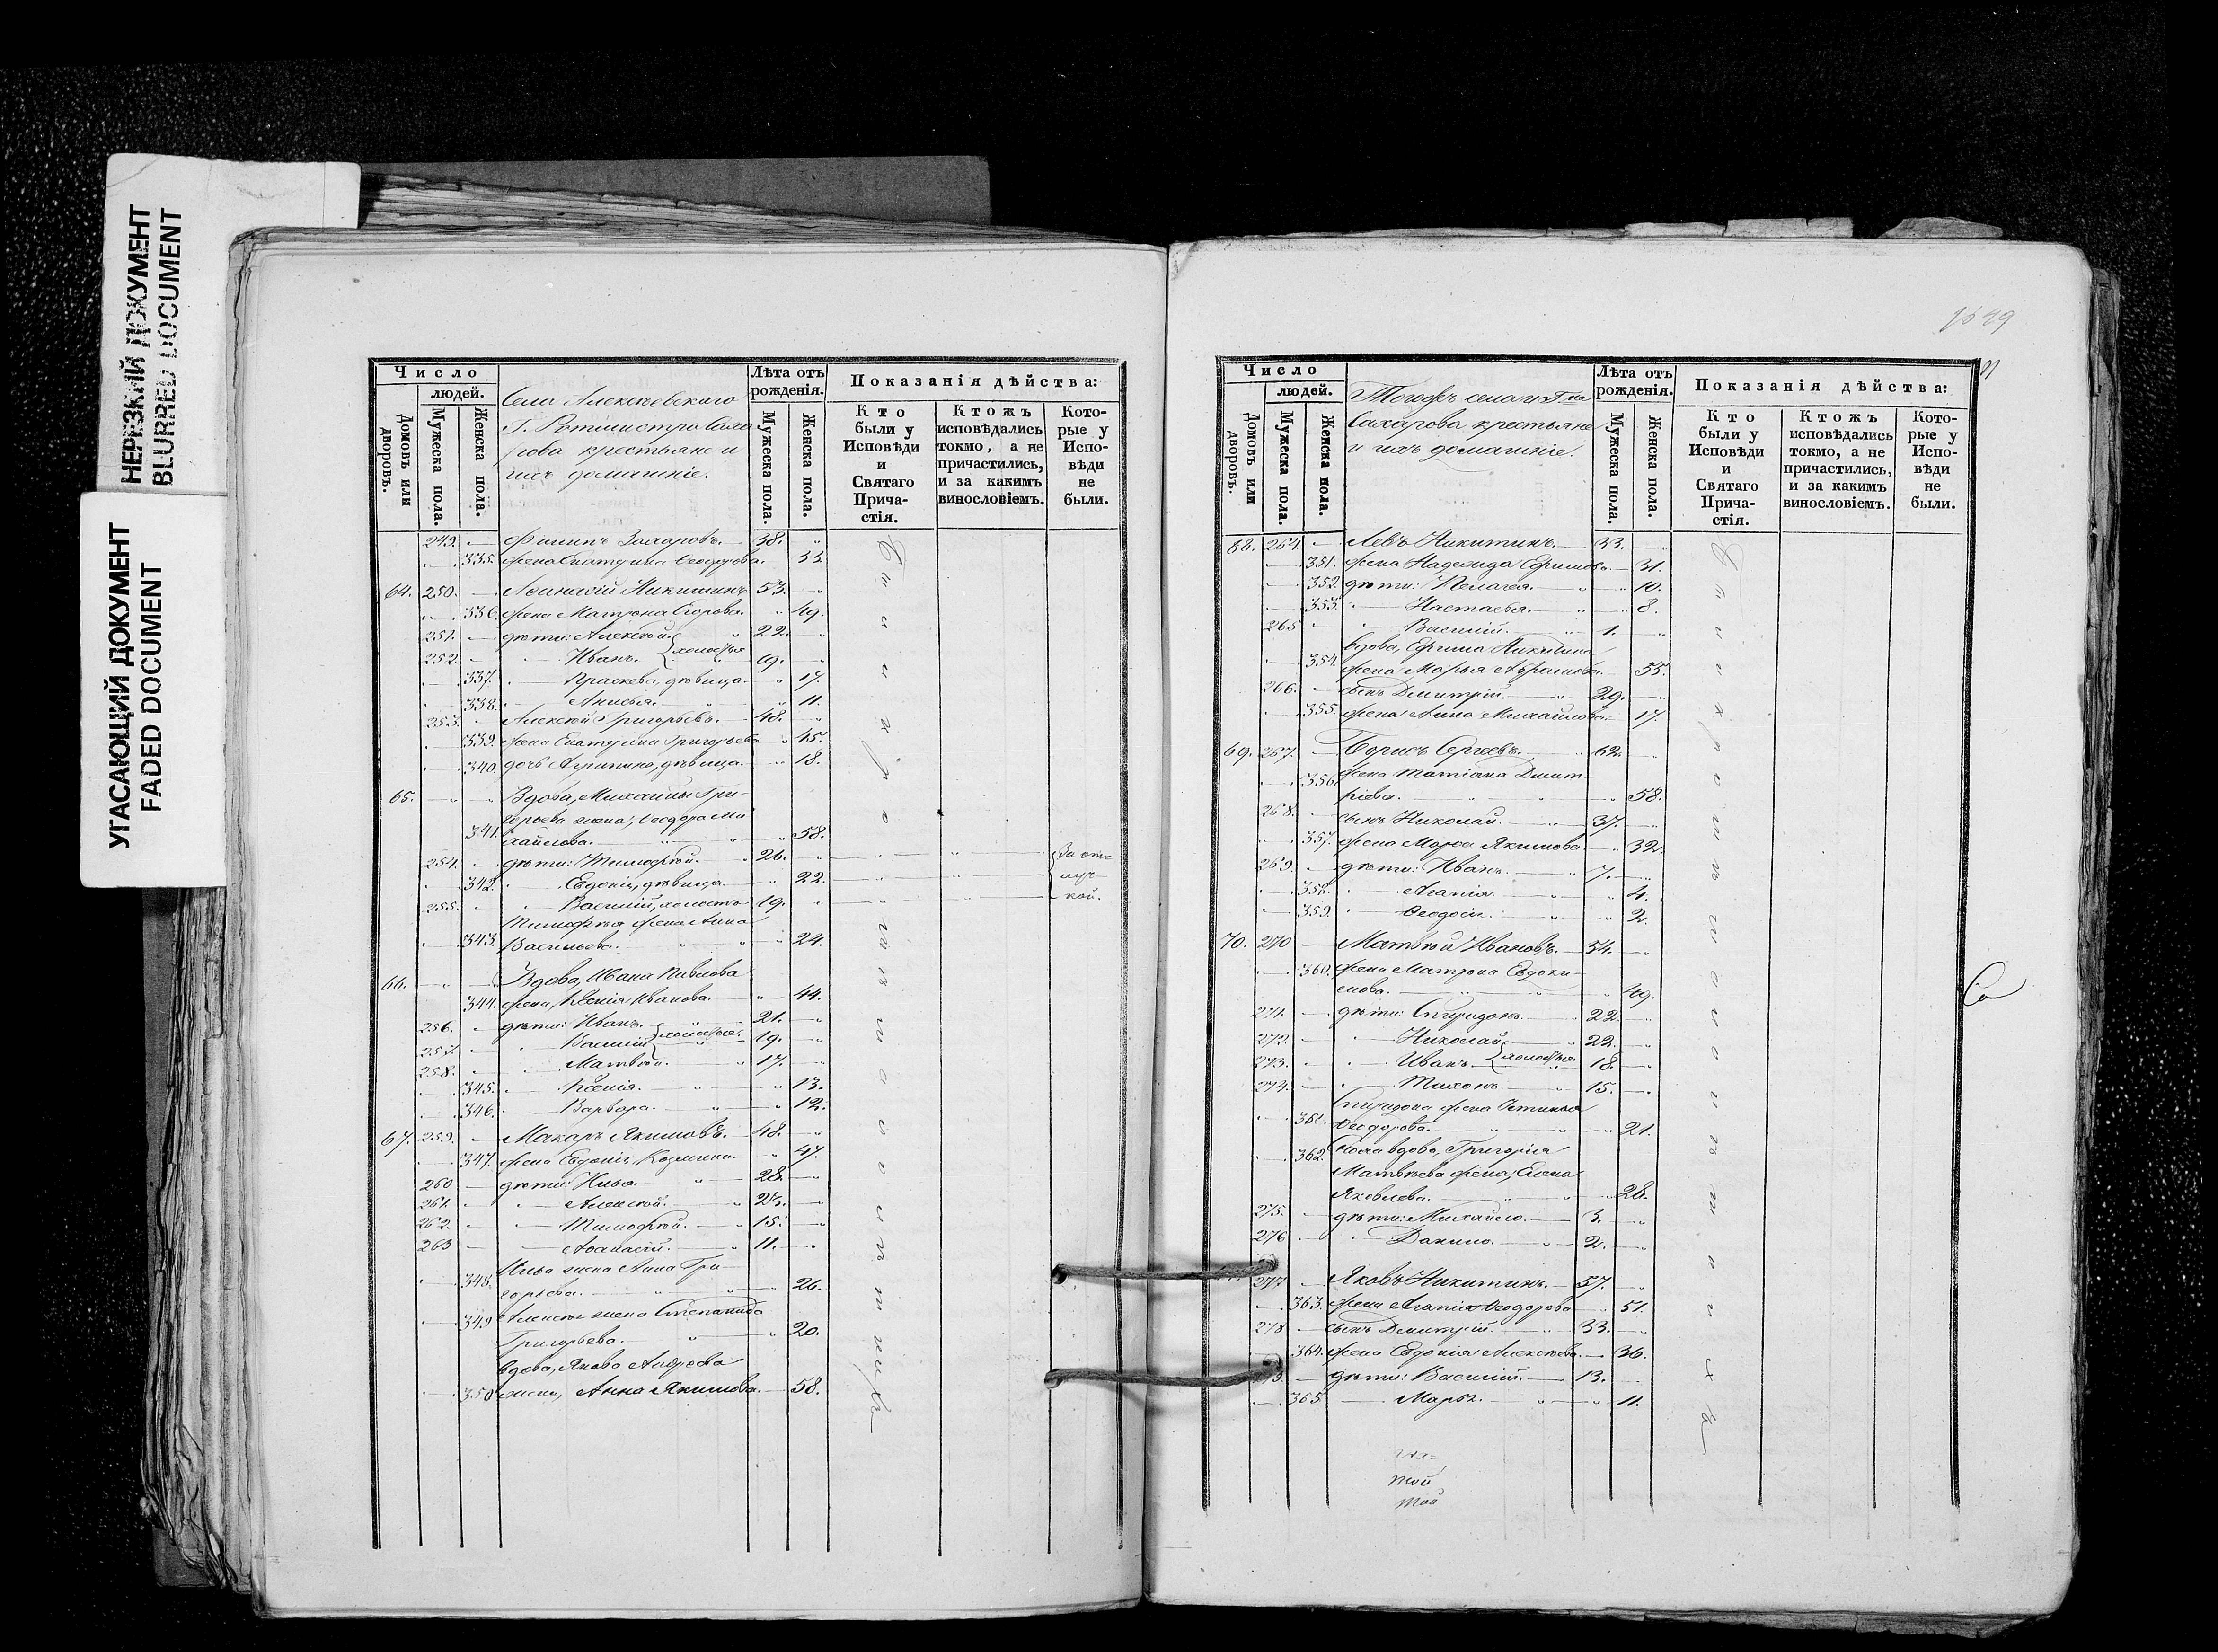 НЕРЕЗКИЙ ДОКУМЕНТ
BLURRED DOCUMENT
УГАСАЮЩИЙ ДОКУМЕНТ
FADED DOCUMENT
Число
людей.
Домовъ или дворовъ.
Мужеска пола.
Женска пола.
Села Алексѣевскаго
Г. Ротмистра Саха-
рова крестьяне и
ихъ домашніе.
Лѣта отъ рожденія.
Мужеска пола.
Женска пола.
Показанія дѣйства:
Кто были у Исповѣди и Святаго Прича-стія.
Ктожъ исповѣдались токмо, а не причастились, и за какимъ винословіемъ.
Кото-рые у Испо-вѣди не были.
249. Филипъ Захаровъ. 38.
335. жена Екатерина Ѳеодорова.
64. 250. Аѳанасій Никитинъ 53.
336. жена Матрона Егорова. 49.
251. дѣти: Алексѣй. 22.
252. Иванъ. холостые 19.
337. Праскева, дѣвица. 17.
338. Анисья. 11.
253. Алексѣй Григорьевъ. 48.
339. жена Екатерина Григорьева 45.
340. дочь Агрипина, дѣвица. 18.
65. Вдова, Михаила Гри-
горьева жена, Ѳеодора Ми
341. хайлова. 58.
254. дѣти: Тимофѣй. 26. За от-
342. Евдокія, дѣвица 22. луч-
255. Василій, холостъ 19. кой.
Тимофѣя жена Анна
343. Васильева. 24.
66. Вдова, Ивана Павлова
344. жена, Ксенія Иванова. 44.
256. дѣти: Иванъ. 21.
257. Василій холостые. 19.
258. Матвѣй. 17.
345. Ксенія. 13.
346. Варвара. 12.
67. 259. Макаръ Якимовъ. 48.
347. жена Евдокія Козмина. 47.
260 дѣти: Илья. 28.
261. Алексѣй. 23.
262. Тимофѣй. 15.
263 Аѳанасій. 11.
348. Ильи жена Анна Гри-
горьева. 26.
349 Алексѣя жена Степанида
Григорьева. 20.
вдова, Якова Андреева
350 жена, Анна Якимова. 58.
Число
людей.
Домовъ или дворовъ.
Мужеска пола.
Женска пола.
Тогожъ села и Г-на
Сахарова крестьяне
и ихъ домашніе.
Лѣта отъ рожденія.
Мужеска пола.
Женска пола.
Показанія дѣйства:
Кто были у Исповѣди и Святаго Прича-стія.
Ктожъ исповѣдались токмо, а не причастились, и за какимъ винословіемъ.
Кото-рые у Испо-вѣди не были.
68. 264. Левъ Никитинъ. 33.
351. жена Надежда Ефимова 31.
352. дѣти: Пелагея. 10.
353. Настасья. 8.
265 Василій. 1.
вдова, Ефима Никитина
354. жена Марья Абрамова. 55.
266. сынъ Димитрій. 29.
355. жена Анна Михайлова. 17.
69. 267. Борисъ Сергѣевъ. 62.
356. жена Татіана Димит-
ріева. 58.
268. сынъ Николай. 37.
357. жена Марѳа Якимова 32.
269. дѣти: Иванъ. 7.
358. Агапія. 4.
359. Ѳеодосія. 2.
70. 270 Матвѣй Ивановъ. 54.
360. жена Матрона Евдоки-
мова. 49.
271. дѣти: Спиридонъ. 22.
272. Николай 22.
273. Иванъ холостые 18.
274. Тихонъ. 15.
Спиридона жена Устинья
361. Ѳеодорова. 21.
362. Сноха вдова, Григорія
Матвѣева жена, Елена
Яковлева. 28.
275. дѣти: Михайло. 3.
276 Данило. 2.
277 Яковъ Никитинъ. 57.
363. жена Агапія Ѳеодорова 51.
278 сынъ Димитрій. 33.
364. жена Евдокія Алексѣева. 36.
дѣти: Василій. 13.
365 Марья. 11.